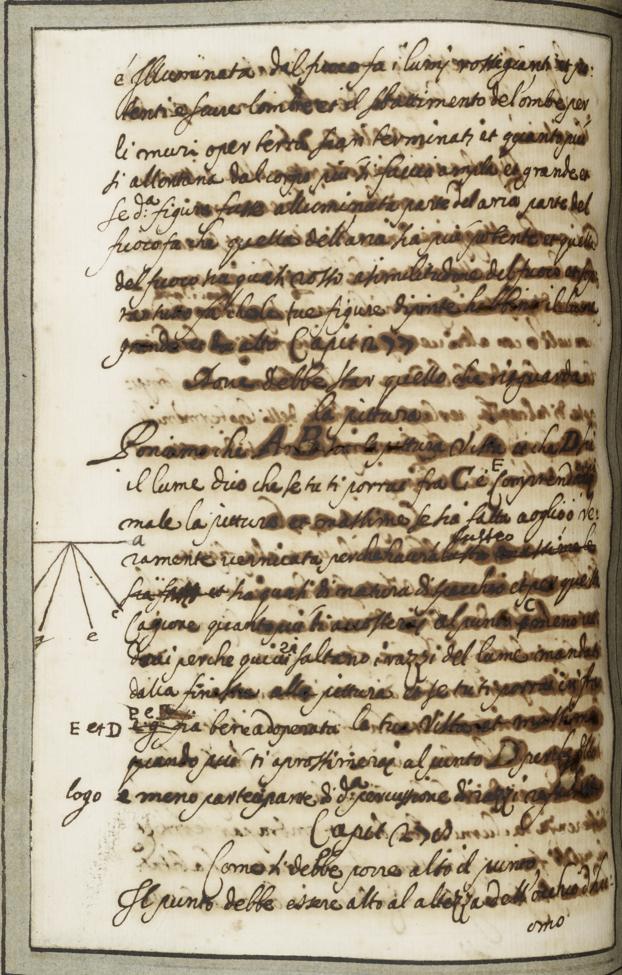 é Illuminata dal fuoco fa i lumi rosseggianti et po:
tenti e scure l'ombre et il sbattimento del ombre per
li muri o per terra sian terminati et quanto più
si allontana dal corpo più si faccia ampla et grande et
se d.ª figura fusse alluminata parte del aria parte del
fuoco fa che quella dell'aria sia più potente et quella
del fuoco sia quasi rossa a similitudine del fuoco et
tutto fa che le tue figure dipinte habbino il lume
grande et da alto Capit 277
Dove debbe star quello che risguarda
la pittura
Poniamo che A B sia la pittura vista et che D sia
il lume dico che se tu ti porrai fra C é E comprenderai
male la pittura et massime se sia fatta a oglio o ve:
a
ramente vernicata perche havra lustro
lustro
sia et sia quasi di natura di specchio et per questa
c
e
Cagione quanto più ti accosterai al punto C meno ve
drai perche quivi saltano i razzi del lume mandati
dalla finestra alla pittura et se tu ti porrai infra
E et D sia bene adoperata la tua vista et massime
quando più ti aprossimerai al punto D perche
logo e meno partecipante di d.ª percussione di razzi
Capit 278
Come si debbe porre alto il punto
Il punto debbe essere alto al altezza dell'occhio d'hu
omo